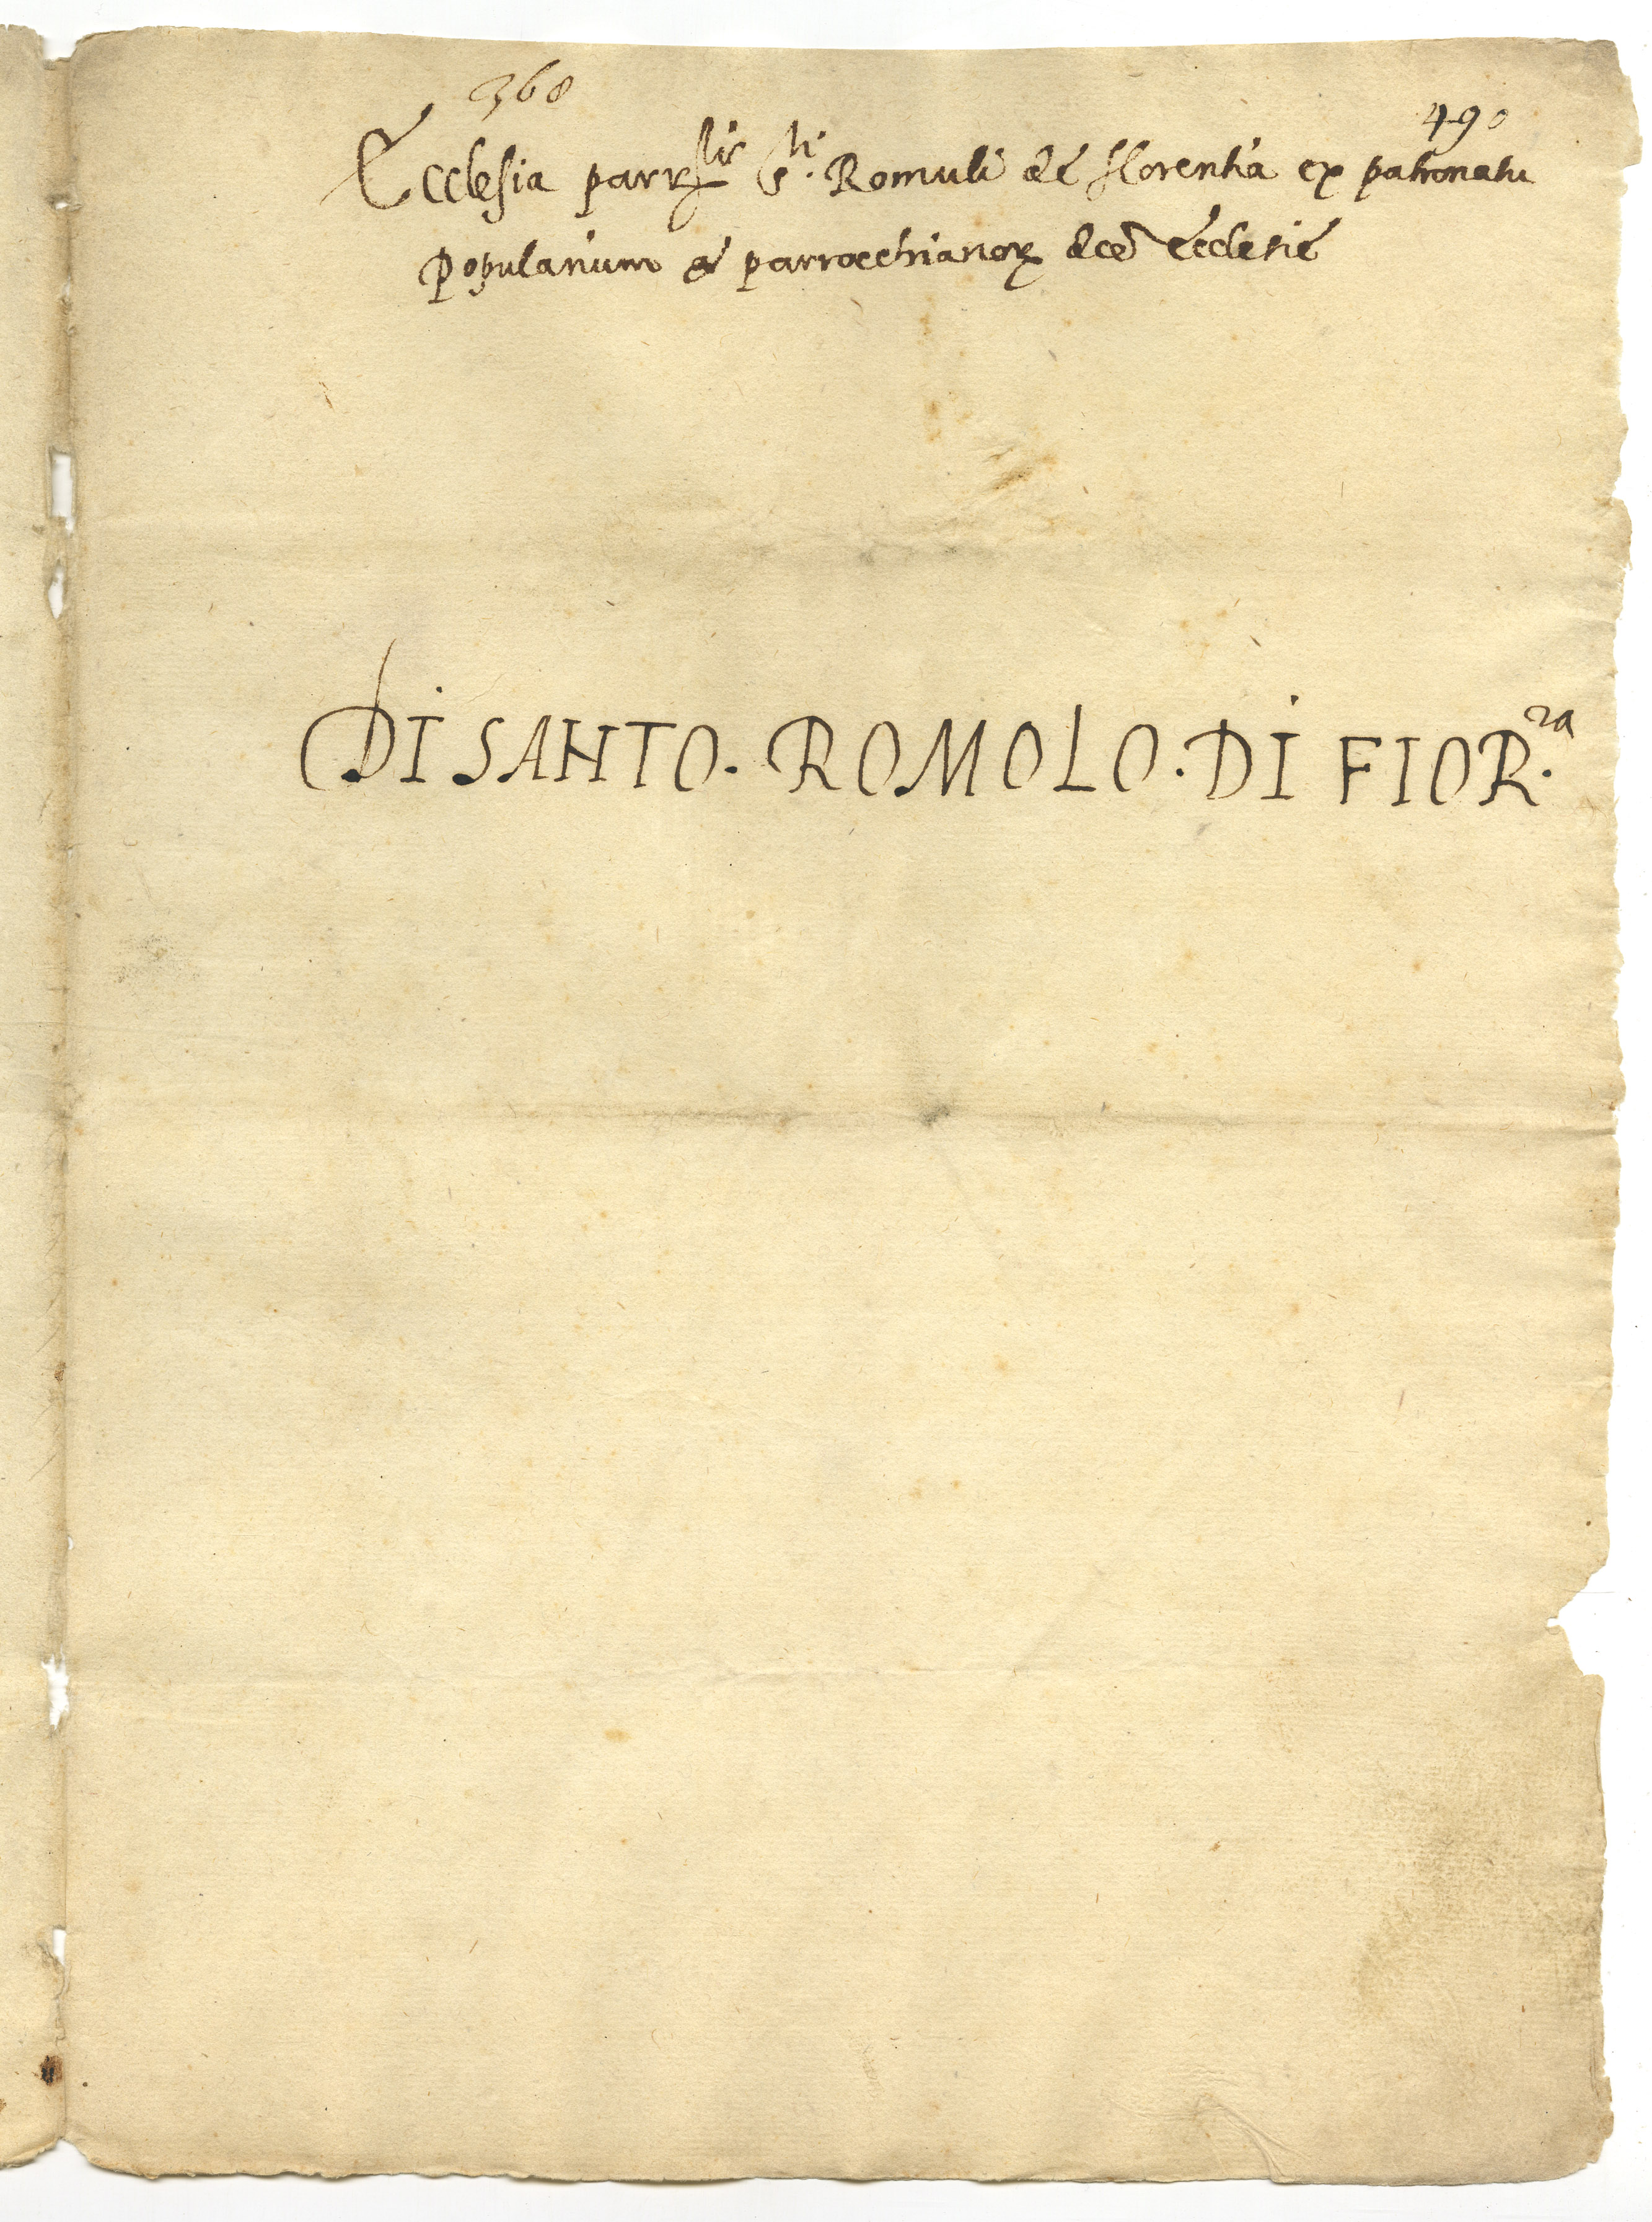 368
490
Ecclesia parr.lis S.ti Romuli de florentia ex patronatu
Popularium et parrocchianorꝝ dcē Ecclesie
DI SANTO. ROMOLO. DI FIOR.za